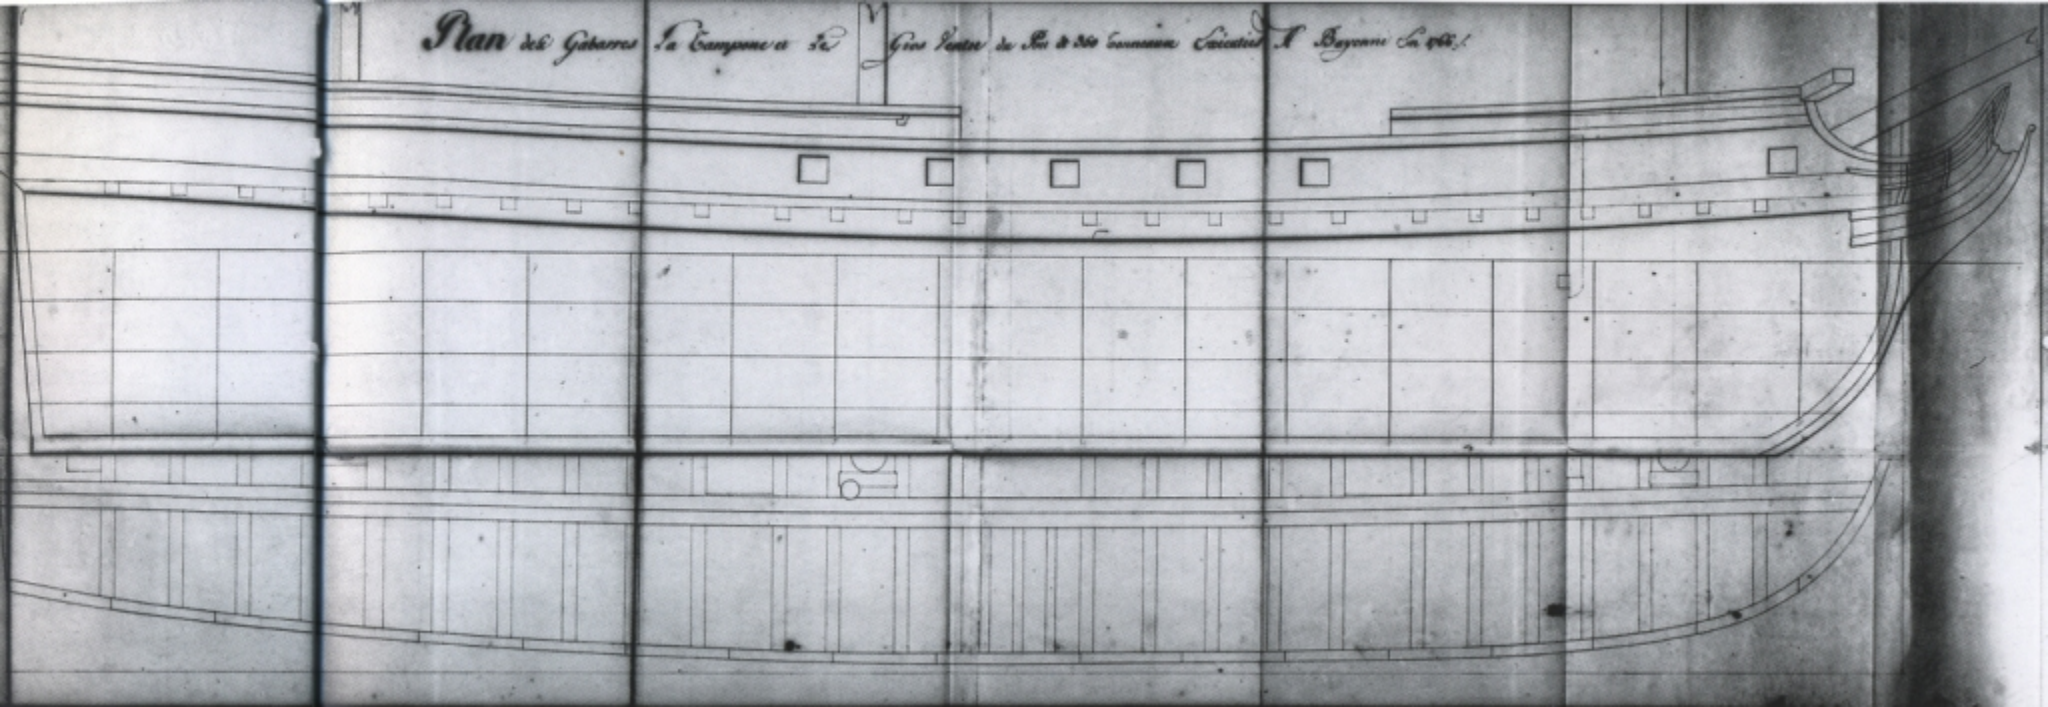 Plan des Gabarres La Tampone et Le Gros Ventre du Port de 360 tonneaux A Bayonne En 1766